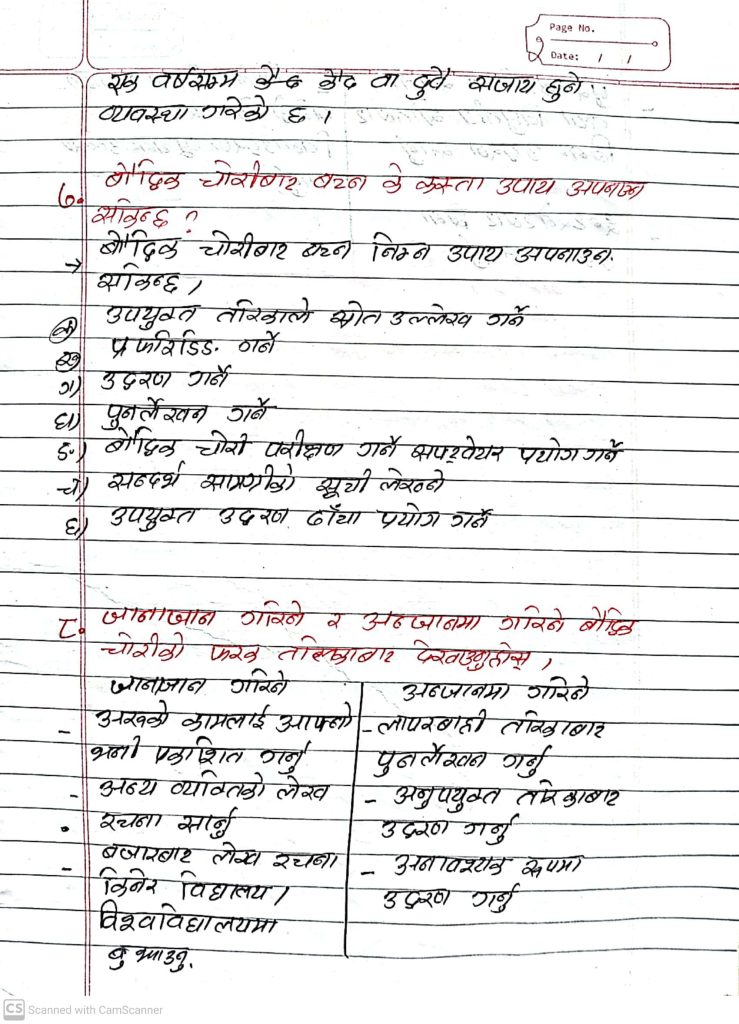 Page No.
Date: / /
एक वर्षसम्म कैद कैद वा दुवै सजाय हुने
व्यवस्था गरेको छ ।
७. बौद्धिक चोरीबाट बच्न के कस्ता उपाय अपनाउन
सकिन्छ ?
→ बौद्धिक चोरीबाट बच्न निम्न उपाय अपनाउन
सकिन्छ ।
क) उपयुक्त तरिकाले स्रोत उल्लेख गर्ने
ख) प्रुफरिडिङ गर्ने
ग) उद्धरण गर्ने
घ) पुनर्लेखन गर्ने
ङ) बौद्धिक चोरी परीक्षण गर्ने सफ्टवेयर प्रयोग गर्ने
च) सन्दर्भ सामग्रीको सूची लेख्ने
छ) उपयुक्त उद्धरण ढाँचा प्रयोग गर्ने
८. जानाजान गरिने र अन्जानमा गरिने बौद्धिक
चोरीको फरक तालिकाबाट देखाउनुहोस् ।
जानाजान गरिने
- अरुको कामलाई आफ्नो
भनी प्रकाशित गर्नु
- अन्य व्यक्तिको लेख
रचना सार्नु
- बजारबाट लेख रचना
किनेर विद्यालय /
विश्वविद्यालयमा
बुझाउनु
अन्जानमा गरिने
- लापरबाही तरिकाबाट
पुनर्लेखन गर्नु
- अनुपयुक्त तरिकाबाट
उद्धरण गर्नु
- अनावश्यक रूपमा
उद्धरण गर्नु
CS Scanned with CamScanner